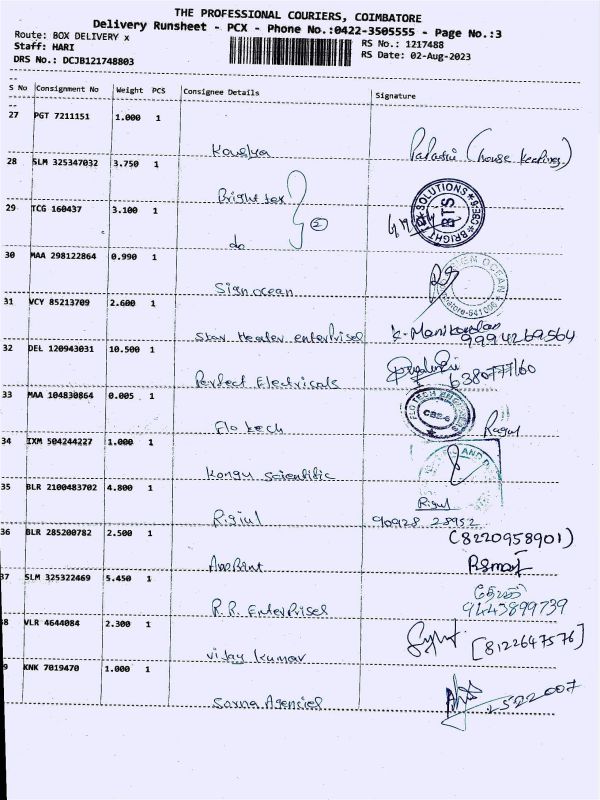 THE PROFESSIONAL COURIERS, COIMBATORE
Delivery Runsheet - PCX - Phone No.:0422-3505555 - Page No.:3
Route: BOX DELIVERY x
RS No.: 1217488
Staff: HARI
RS Date: 02-Aug-2023
DRS No.: DCJB121748803
S No Consignment No Weight PCS Consignee Details Signature
27 PGT 7211151 1.000 1
(house keeping)
28 SLM 325347032 3.750 1
SOLUTIONS
BTS
BRIGHT
29 TCG 160437 3.100 1
2
do
30 MAA 298122864 0.990 1
OCEAN
Signocean
31 VCY 85213709 2.600 1
Star Heater enterprises
9994269564
32 DEL 120943031 10.500 1
Perfect Electricals
6380777160
33 MAA 104830864 0.005 1
CBE-6
Flo tech
Ragul
34 IXM 504244227 1.000 1
Kongu Scientific
35 BLR 2100483702 4.800 1
90928 28952
36 BLR 285200782 2.500 1
(8220958901)
37 SLM 325322469 5.450 1
R.R. Enterprises
9443899739
8 VLR 4644084 2.300 1
[8122647576]
Vijay Kumar
9 KNK 7019470 1.000 1
2522007